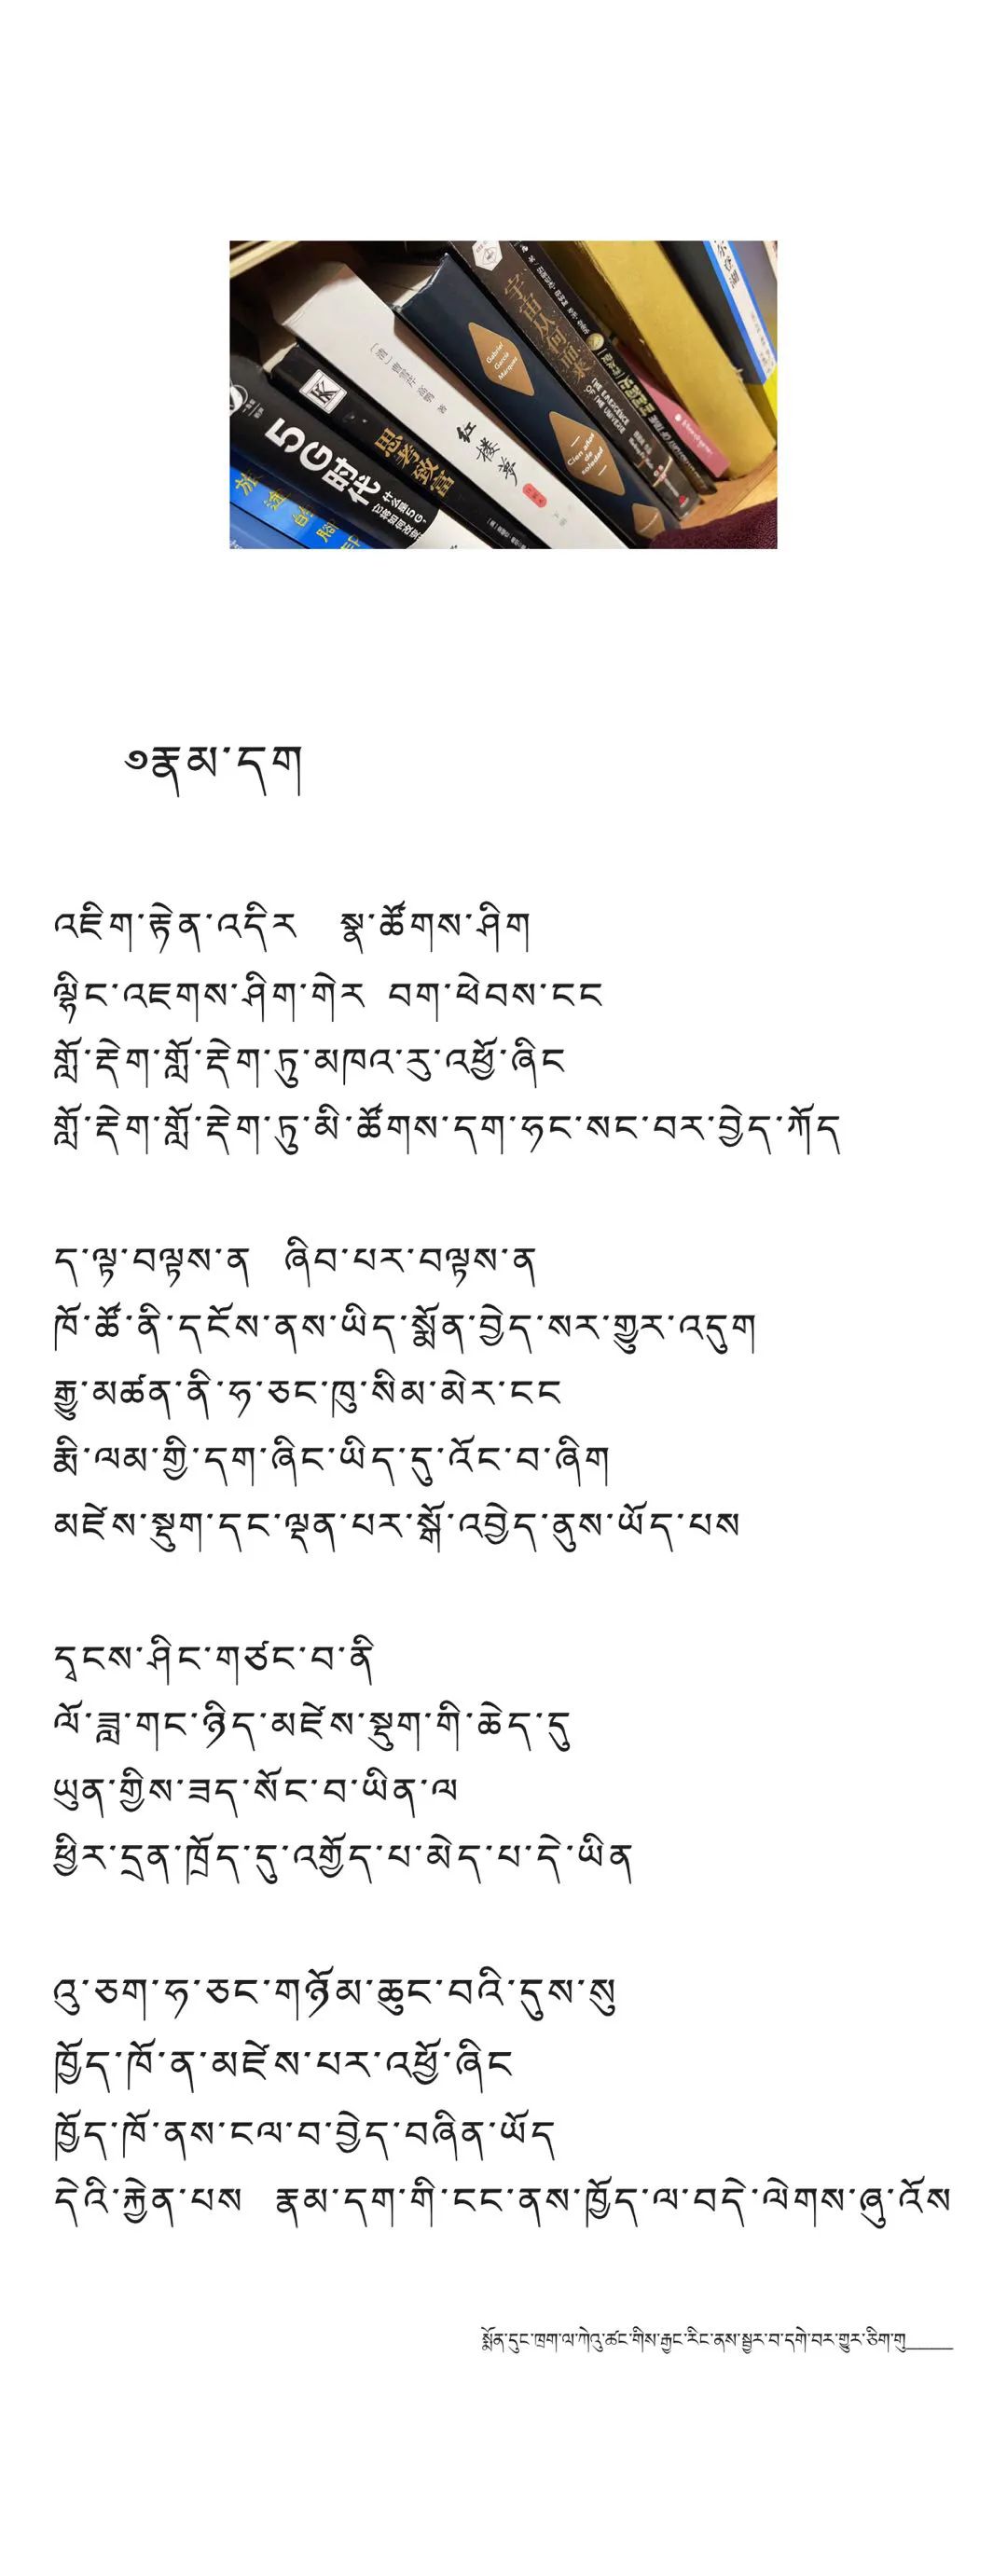 旅
5G时代
什么是5G,
它将如何改变
思考致富
[清]曹雪芹 高鹗 著
红楼梦
Gabriel
García
Márquez
Cien años
de
soledad
宇宙从何而来
༡རྣམ་དག
འཇིག་རྟེན་འདིར སྣ་ཚོགས་ཤིག
ལྷིང་འཇགས་ཤིག་གེར བག་ཕེབས་ངང
གློ་རྡེག་གློ་རྡེག་ཏུ་མཁའ་རུ་འཕྱོ་ཞིང
གློ་རྡེག་གློ་རྡེག་ཏུ་མི་ཚོགས་དག་ཧང་སང་བར་བྱེད་ཀོད
ད་ལྟ་བལྟས་ན ཞིབ་པར་བལྟས་ན
ཁོ་ཚོ་ནི་དངོས་ནས་ཡིད་སྨོན་བྱེད་སར་གྱུར་འདུག
རྒྱུ་མཚན་ནི་ཧ་ཅང་ཁུ་སིམ་མེར་ངང
རྨི་ལམ་གྱི་དག་ཞིང་ཡིད་དུ་འོང་བ་ཞིག
མཛེས་སྡུག་དང་ལྡན་པར་སྒོ་འབྱེད་ནུས་ཡོད་པས
དྭངས་ཤིང་གཙང་བ་ནི
ལོ་ཟླ་གང་ཉིད་མཛེས་སྡུག་གི་ཆེད་དུ
ཡུན་གྱིས་ཟད་སོང་བ་ཡིན་ལ
ཕྱིར་དྲན་ཁྲོད་དུ་འགྱོད་པ་མེད་པ་དེ་ཡིན
འུ་ཅག་ཧ་ཅང་གཉོམ་ཆུང་བའི་དུས་སུ
ཁྱོད་ཁོ་ན་མཛེས་པར་འཕྱོ་ཞིང
ཁྱོད་ཁོ་ནས་ངལ་བ་བྱེད་བཞིན་ཡོད
དེའི་རྐྱེན་པས རྣམ་དག་གི་ངང་ནས་ཁྱོད་ལ་བདེ་ལེགས་ཞུ་འོས
སྨོན་དུང་ཁྲག་ལ་ཀེའུ་ཚང་གིས་རྒྱང་རིང་ནས་སྦྱར་བ་དགེ་བར་གྱུར་ཅིག་གུ____